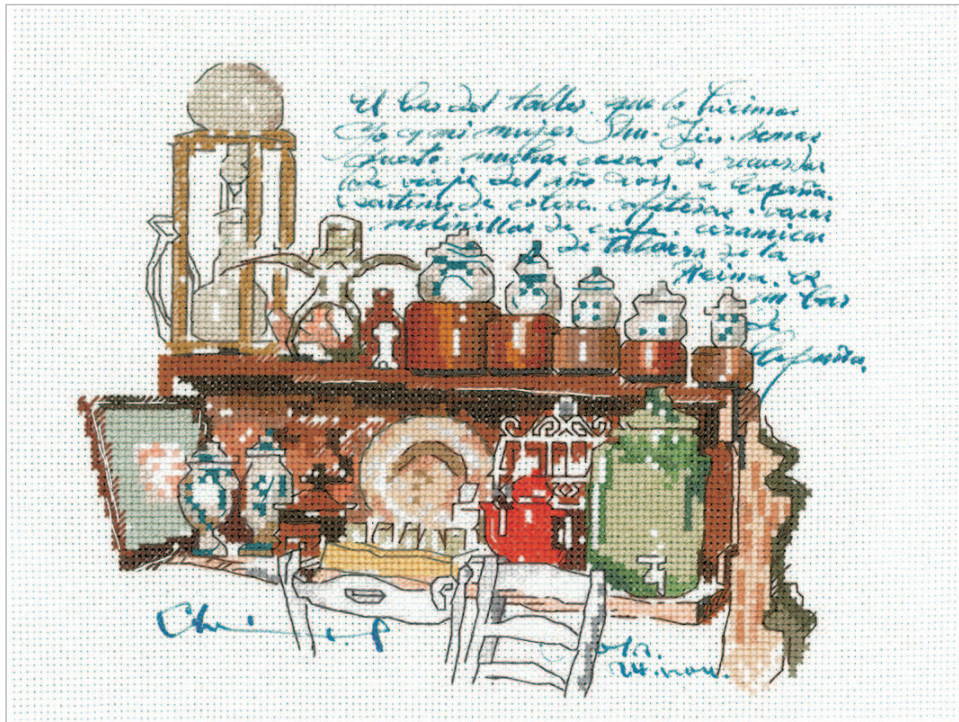 El bar del taller. que lo hicimos
yo y mi mujer Shu. Jin. hemos
puesto. muchas cosas de recuerdos
de viaje del año a España.
de cafeteras.
molinillos de café. ceramicas
de talavera de la
Reina. es
un bar
de
España.
24. nov.